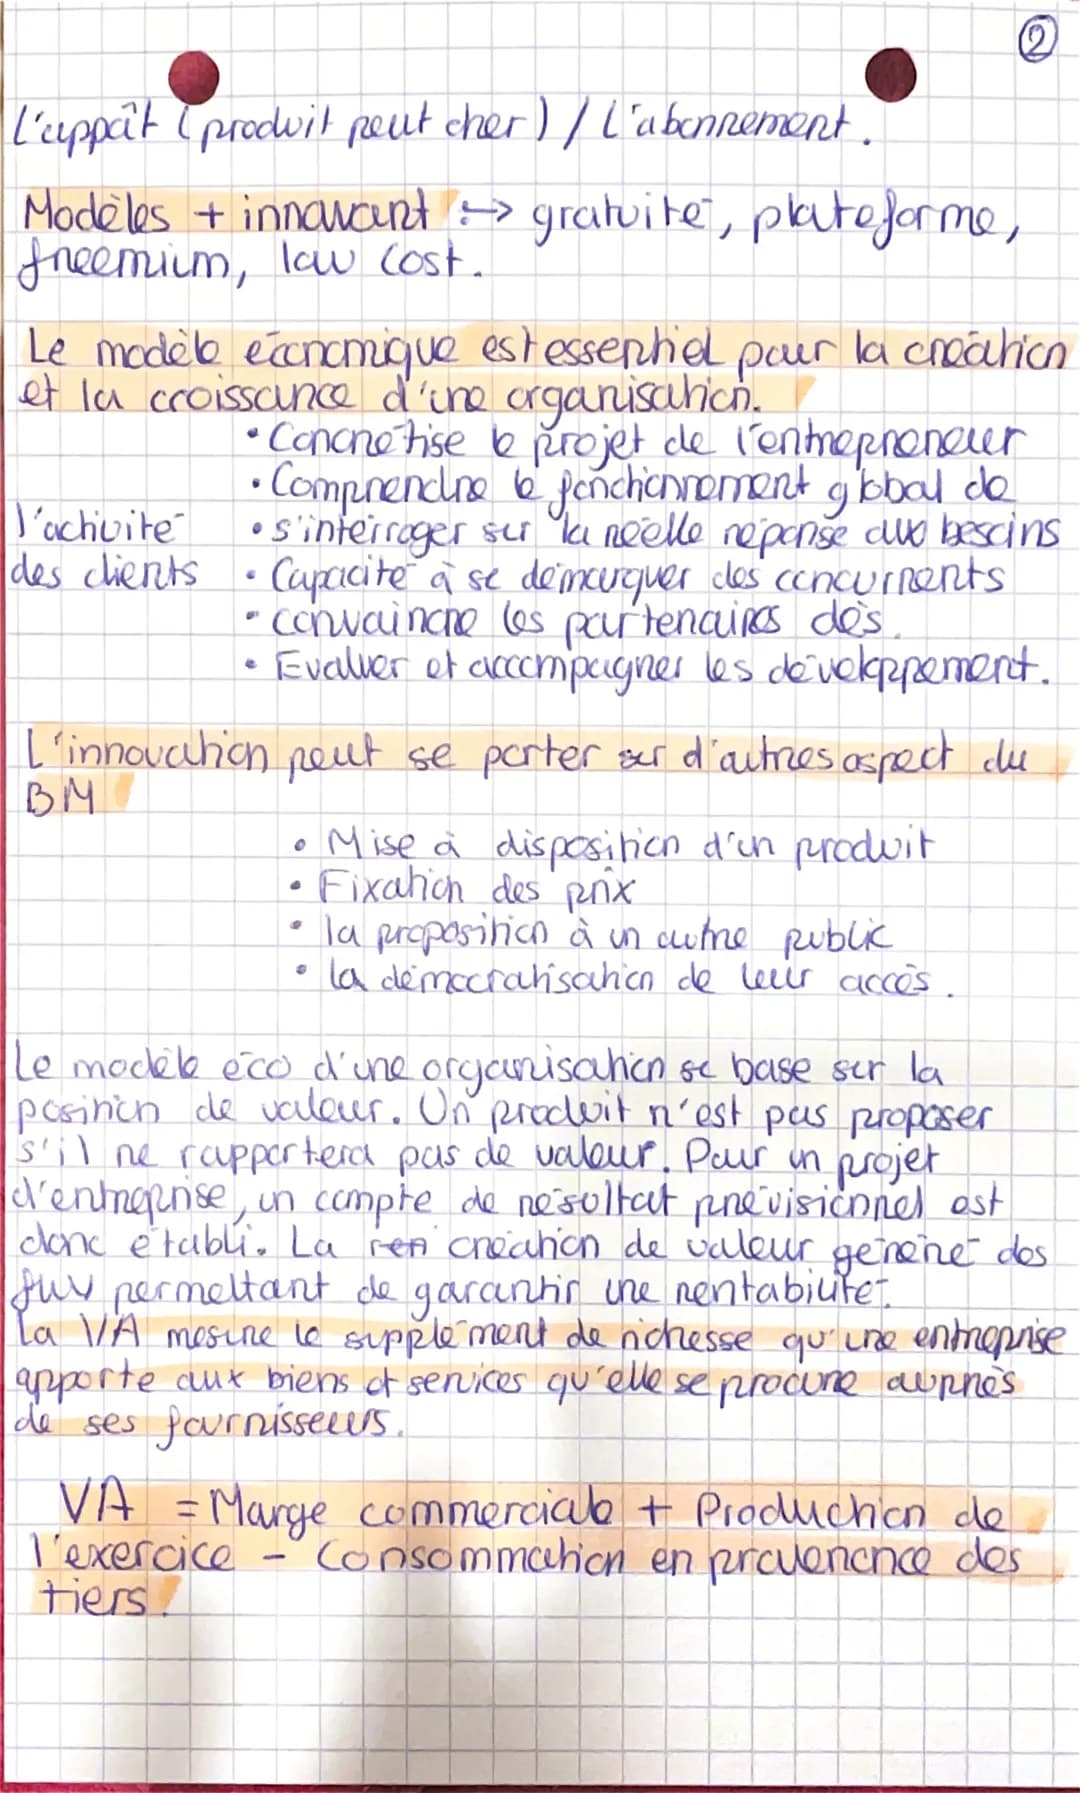 ②
L'appât (produit peut cher) / L'abonnement.
Modèles + innovant :→ gratuité, plateforme,
freemium, low cost.
Le modèle économique est essentiel pour la création
et la croissance d'une organisation.
• Concrétise le projet de l'entrepreneur
• Comprendre le fonctionnement global de
l'activité • s'intérroger sur la réelle réponse aux besoins
des clients • Capacité à se démarquer des concurrents
• convaincre les partenaires dès.
• Evaluer et accompagner les développement.
L'innovation peut se porter sur d'autres aspect du
BM
• Mise à disposition d'un produit
• Fixation des prix
• la proposition à un autre public
• la démocratisation de leur accès.
Le modèle éco d'une organisation se base sur la
position de valeur. Un produit n'est pas proposer
s'il ne rapportera pas de valeur. Pour un projet
d'entreprise, un compte de résultat prévisionnel est
donc établi. La création de valeur génére des
fux permettant de garantir une rentabilité.
La VA mesure le supplément de richesse qu'une entreprise
apporte aux biens et services qu'elle se procure auprès
de ses fournisseurs.
VA = Marge commerciale + Production de
l'exercice - Consommation en provenance des
tiers.